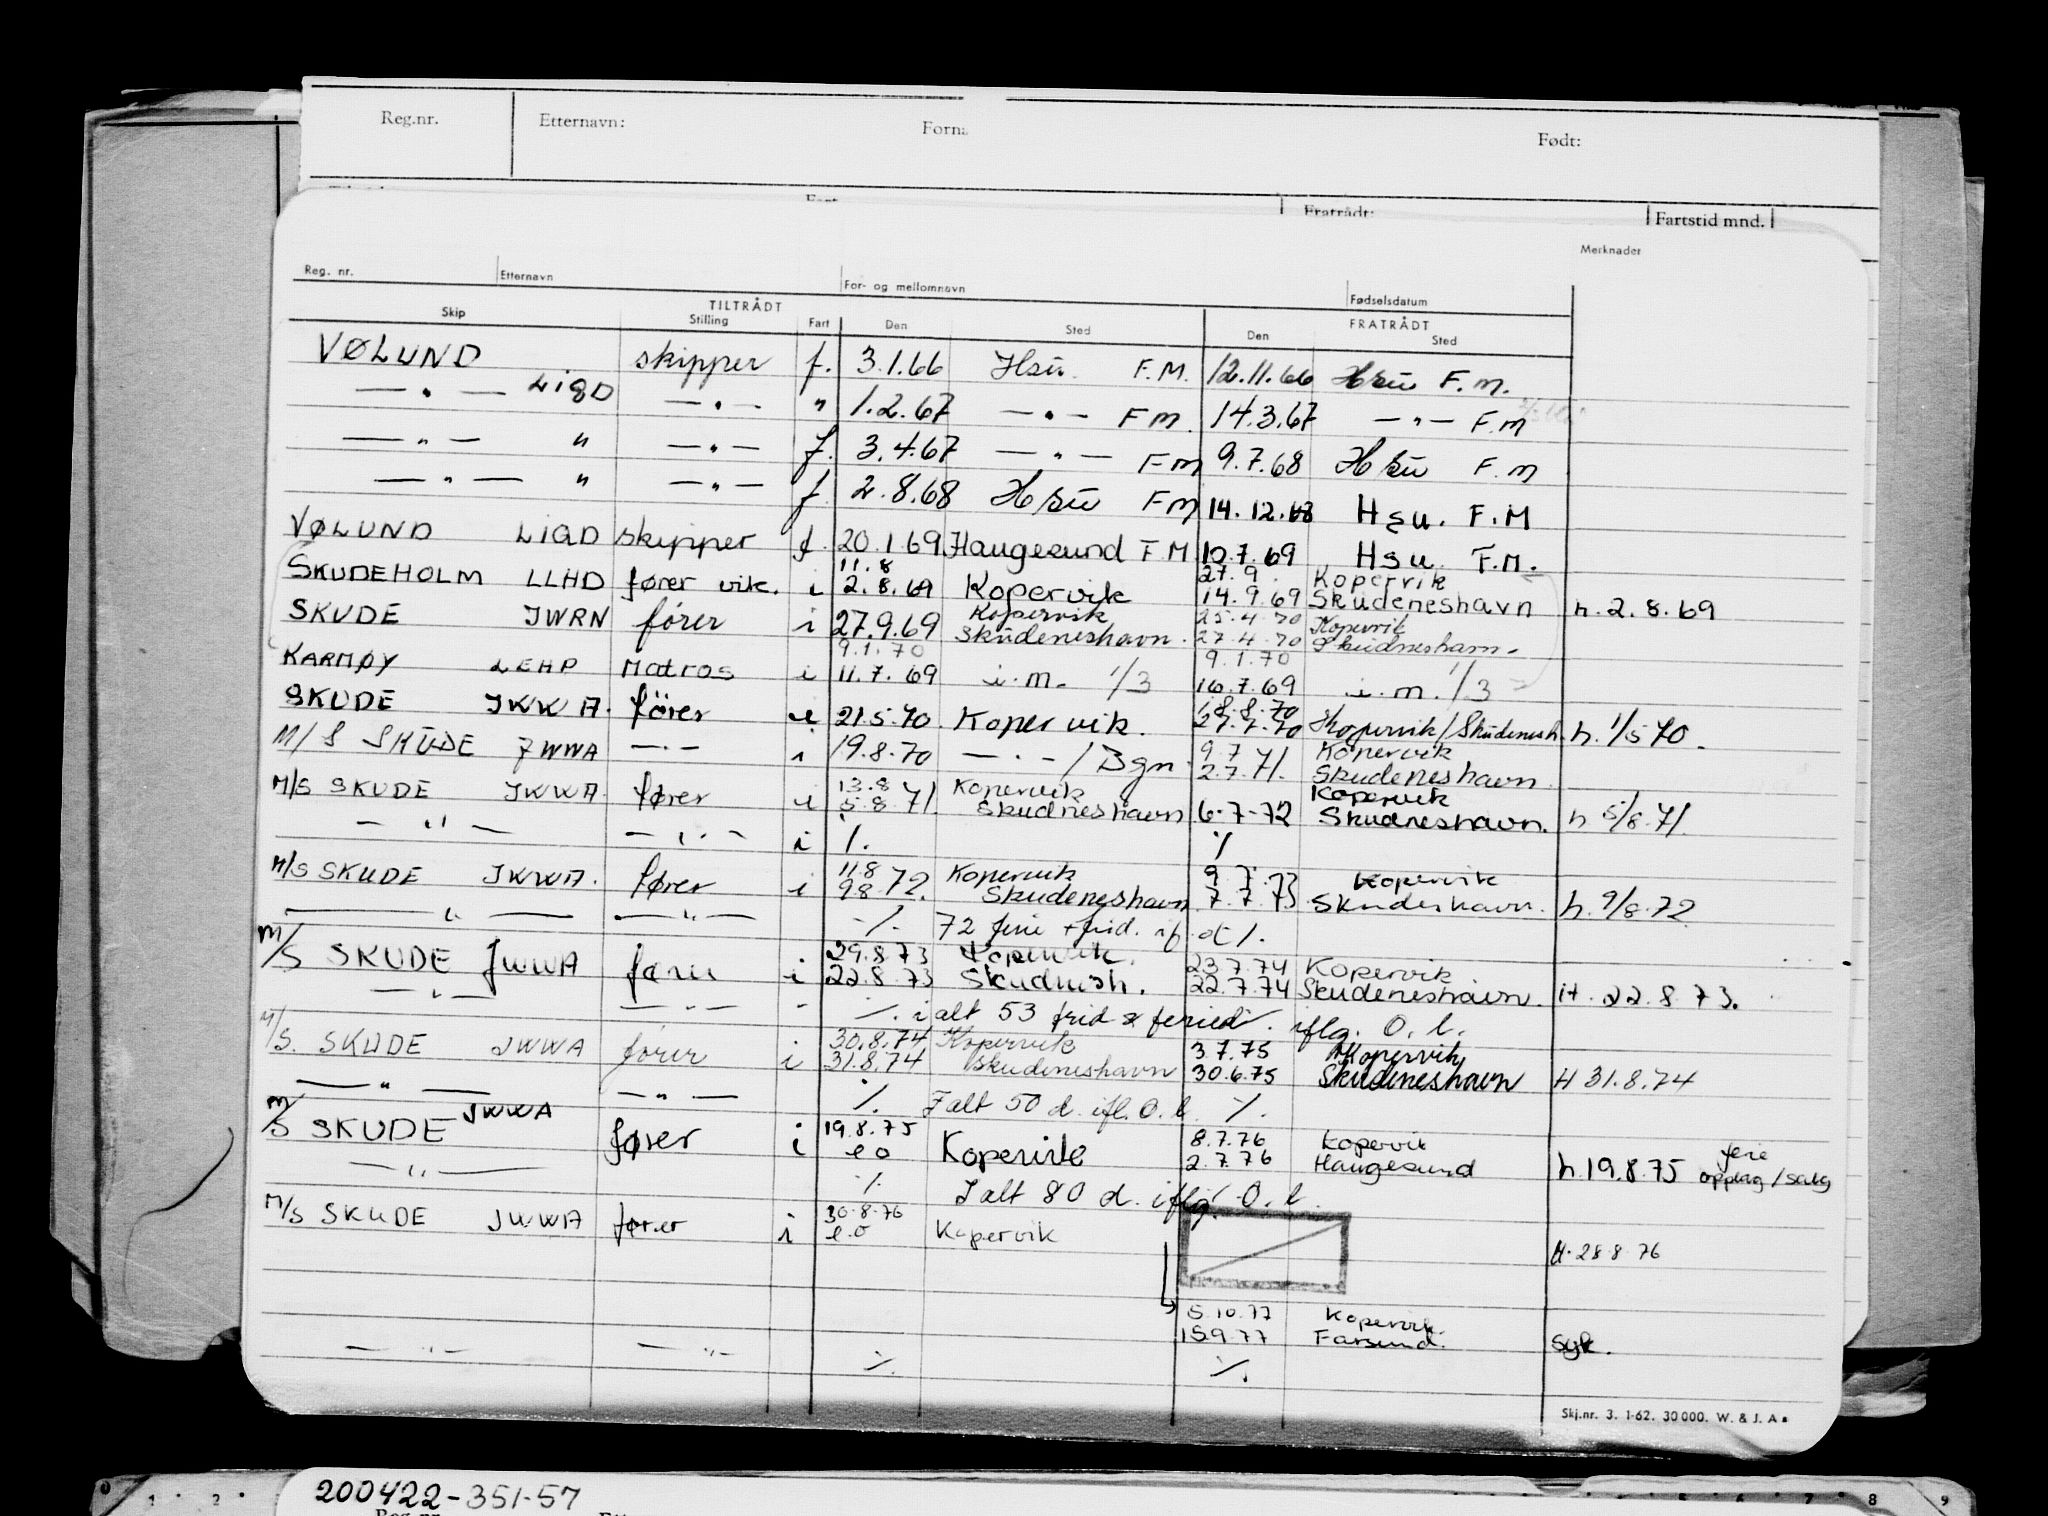 Reg.nr. Etternavn: Forna Født:
Fratrådt: Fartstid mnd.
Merknader
Reg. nr. Etternavn For- og mellomnavn Fødselsdatum
TILTRÅDT FRATRÅDT
Skip Stilling Fart Den Sted Den Sted
VØLUND skipper f. 3.1.66 Hsu. F.M. 12.11.66 Hsu F.M.
— " — LIGD — " — " 1.2.67 — " — FM. 14.3.67 — " — F.M
— " — " — " — f. 3.4.67 — " — FM 9.7.68 Hsu F.M
— " — " — " — f. 2.8.68 Hsu FM 14.12.68 Hsu. F.M
VØLUND LIGD skipper f. 20.1 69 Haugesund F M 10.7.69 Hsu F.M.
11.8 27.9. Kopervik
SKUDEHOLM LLHD fører vik. i 2.8.69 Kopervik 14.9.69 Skudeneshavn h. 2.8.69
Kopervik 25.4.70 Kopervik
SKUDE JWRN fører i 27.9.69 Skudeneshavn. 27.4.70 Skudneshavn.
9.1.70 9.1.70
KARMØY LEHP Matros i 11.7.69 i.m. 1/3 16.7.69 i.m. 1/3
18.8.70
SKUDE JWWA. fører i 21.5.70 Kopervik. 27.7.70 Kopervik/Skudenesh. h. 1/5 70.
9.7 Kopervik
M/S SKUDE JWWA — " — i 19.8.70 — " — / Bgn 2.7.71. Skudeneshavn.
13.8 Kopervik Kopervik
M/S SKUDE JWWA. fører i 5.8.71. Skudneshavn 6.7.72 Skudneshavn. h 5/8.71.
— " — — " — i ./. ./.
11.8 Kopervik 9.7.73 Kopervik
M/S SKUDE JWWA. fører i 9.8.72. Skudeneshavn 7.7.73 Skudeshavn. h. 9/8.72
— " — — " — ./. 72 ferie + frid. if. o ./.
29.8.73 Kopervik. 23.7.74 Kopervik
M/S SKUDE JWWA fører i 22.8.73 Skudnesh. 22.7.74 Skudeneshavn H. 22.8 73.
— " — — " — " ./. i alt 53 frid & feried ./. iflg. O. l.
30.8.74 Kopervik 3.7.75 Kopervik
M/S. SKUDE JWWA fører i 31.8.74 Skudeneshavn 30.6.75 Skudeneshavn H 31.8.74
— " — — " — ./. I alt 50 d. ifl. O. l. ./.
JWWA 19.8.75 8.7.76 Kopervik ferie
M/S SKUDE fører i e o Kopervik 2.7.76 Haugesund h. 19.8.75 opplag/salg
— " — ./. I alt 80 d. iflg. O. l.
30.8.76
M/S SKUDE JWWA fører i e o Kopervik H. 28 8 76
5.10.77 Kopervik.
15.9.77 Farsund. syk.
— " — — " — ./. ./.
Skj.nr. 3. 1-62. 30 000. W. & J. A s
200422-351-57
Reg.nr.
1 2 5 6 7 8 9